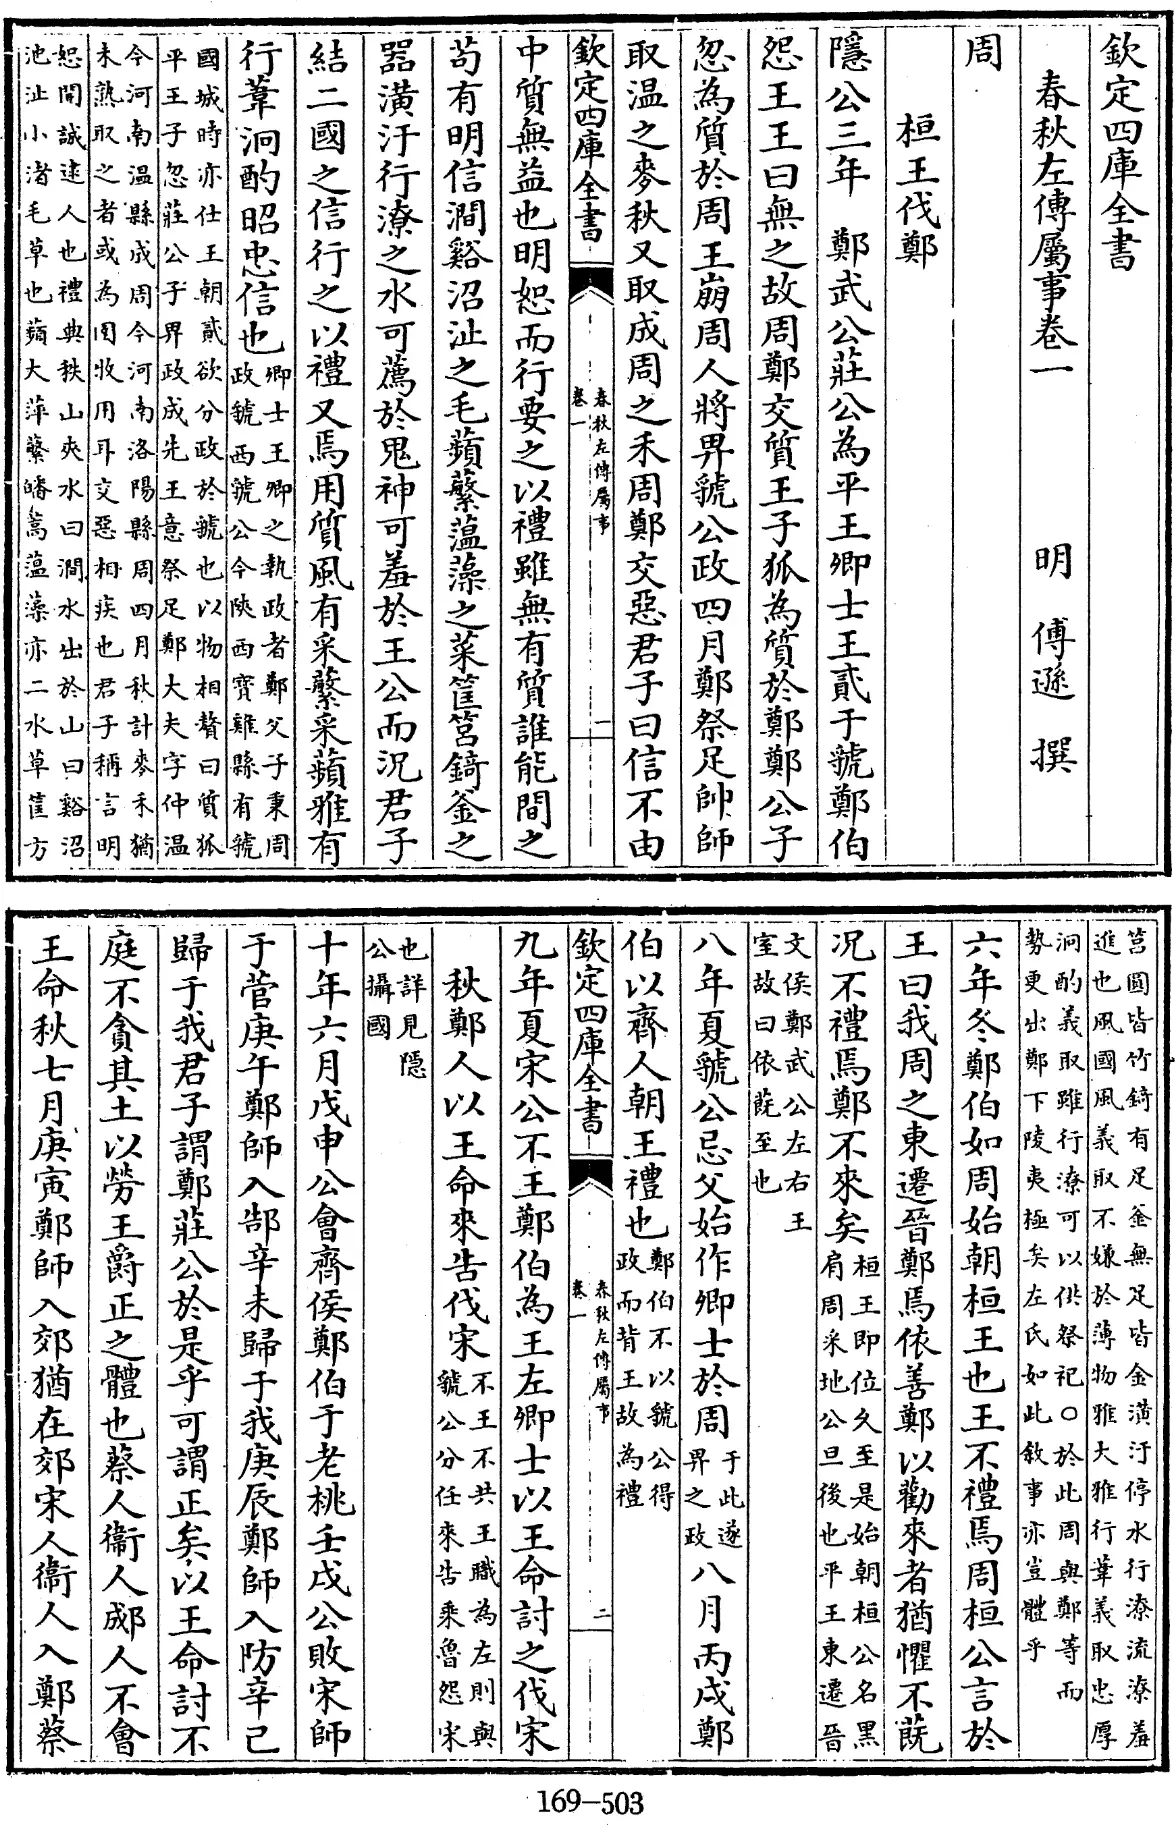 欽定四庫全書
春秋左傳屬事卷一
明 傅遜 撰
周
桓王伐鄭
隱公三年 鄭武公莊公為平王卿士王貳于虢鄭伯
怨王王曰無之故周鄭交質王子狐為質於鄭鄭公子
忽為質於周王崩周人將畀虢公政四月鄭祭足帥師
取温之麥秋又取成周之禾周鄭交惡君子曰信不由
欽定四庫全書 春秋左傳屬事 卷一 一
中質無益也明恕而行要之以禮雖無有質誰能間之
苟有明信澗谿沼沚之毛蘋蘩薀藻之菜筐筥錡釜之
器潢汙行潦之水可薦於鬼神可羞於王公而況君子
結二國之信行之以禮又焉用質風有采蘩采蘋雅有
行葦泂酌昭忠信也卿士王卿之執政者鄭父子秉周
政虢西虢公今陝西寳雞縣有虢
國城時亦仕王朝貳欲分政於虢也以物相贅曰質狐
平王子忽莊公子畀政成先王意祭足鄭大夫字仲温
今河南温縣成周今河南洛陽縣周四月秋計麥禾猶
未熟取之者或為圉牧用耳交惡相疾也君子稱言明
恕開誠逮人也禮典秩山夾水曰澗水出於山曰谿沼
池沚小渚毛草也蘋大萍蘩皤蒿薀藻亦二水草筐方
筥圓皆竹錡有足釜無足皆金潢汙停水行潦流潦羞
進也風國風義取不嫌於薄物雅大雅行葦義取忠厚
泂酌義取雖行潦可以供祭祀○於此周與鄭等而
勢更出鄭下陵夷極矣左氏如此敘事亦豈體乎
六年冬鄭伯如周始朝桓王也王不禮焉周桓公言於
王曰我周之東遷晉鄭焉依善鄭以勸來者猶懼不蔇
況不禮焉鄭不來矣桓王即位久至是始朝桓公名黑
肩周采地公旦後也平王東遷晉
文侯鄭武公左右王
室故曰依蔇至也
八年夏虢公忌父始作卿士於周于此遂
畀之政八月丙戌鄭
伯以齊人朝王禮也鄭伯不以虢公得
政而背王故為禮
欽定四庫全書 春秋左傳屬事 卷一 二
九年夏宋公不王鄭伯為王左卿士以王命討之伐宋
秋鄭人以王命來告伐宋不王不共王職為左則與
虢公分任來告乘魯怨宋
也詳見隱
公攝國
十年六月戊申公會齊侯鄭伯于老桃壬戌公敗宋師
于菅庚午鄭師入郜辛未歸于我庚辰鄭師入防辛己
歸于我君子謂鄭莊公於是乎可謂正矣以王命討不
庭不貪其土以勞王爵正之體也蔡人衞人郕人不會
王命秋七月庚寅鄭師入郊猶在郊宋人衞人入鄭蔡
169-503